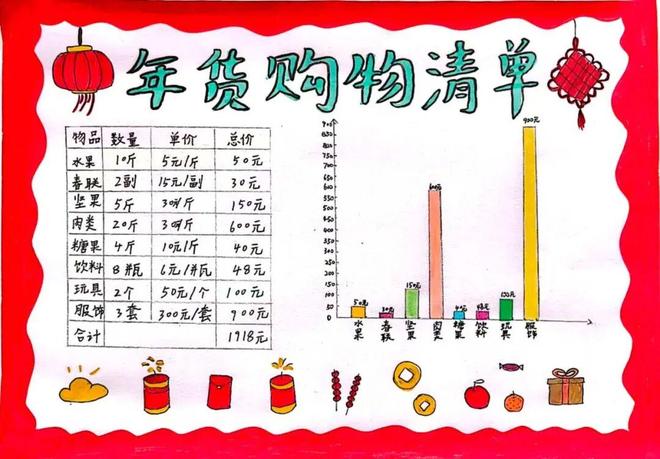 年货购物清单
物品 数量 单价 总价
水果 10斤 5元/斤 50元
春联 2副 15元/副 30元
坚果 5斤 30元/斤 150元
肉类 20斤 30元/斤 600元
糖果 4斤 10元/斤 40元
饮料 8瓶 6元/瓶 48元
玩具 2个 50元/个 100元
服饰 3套 300元/套 900元
合计 1918元
900元
600元
150元
50元 30元
水果 春联 坚果 肉类 糖果 饮料 玩具 服饰